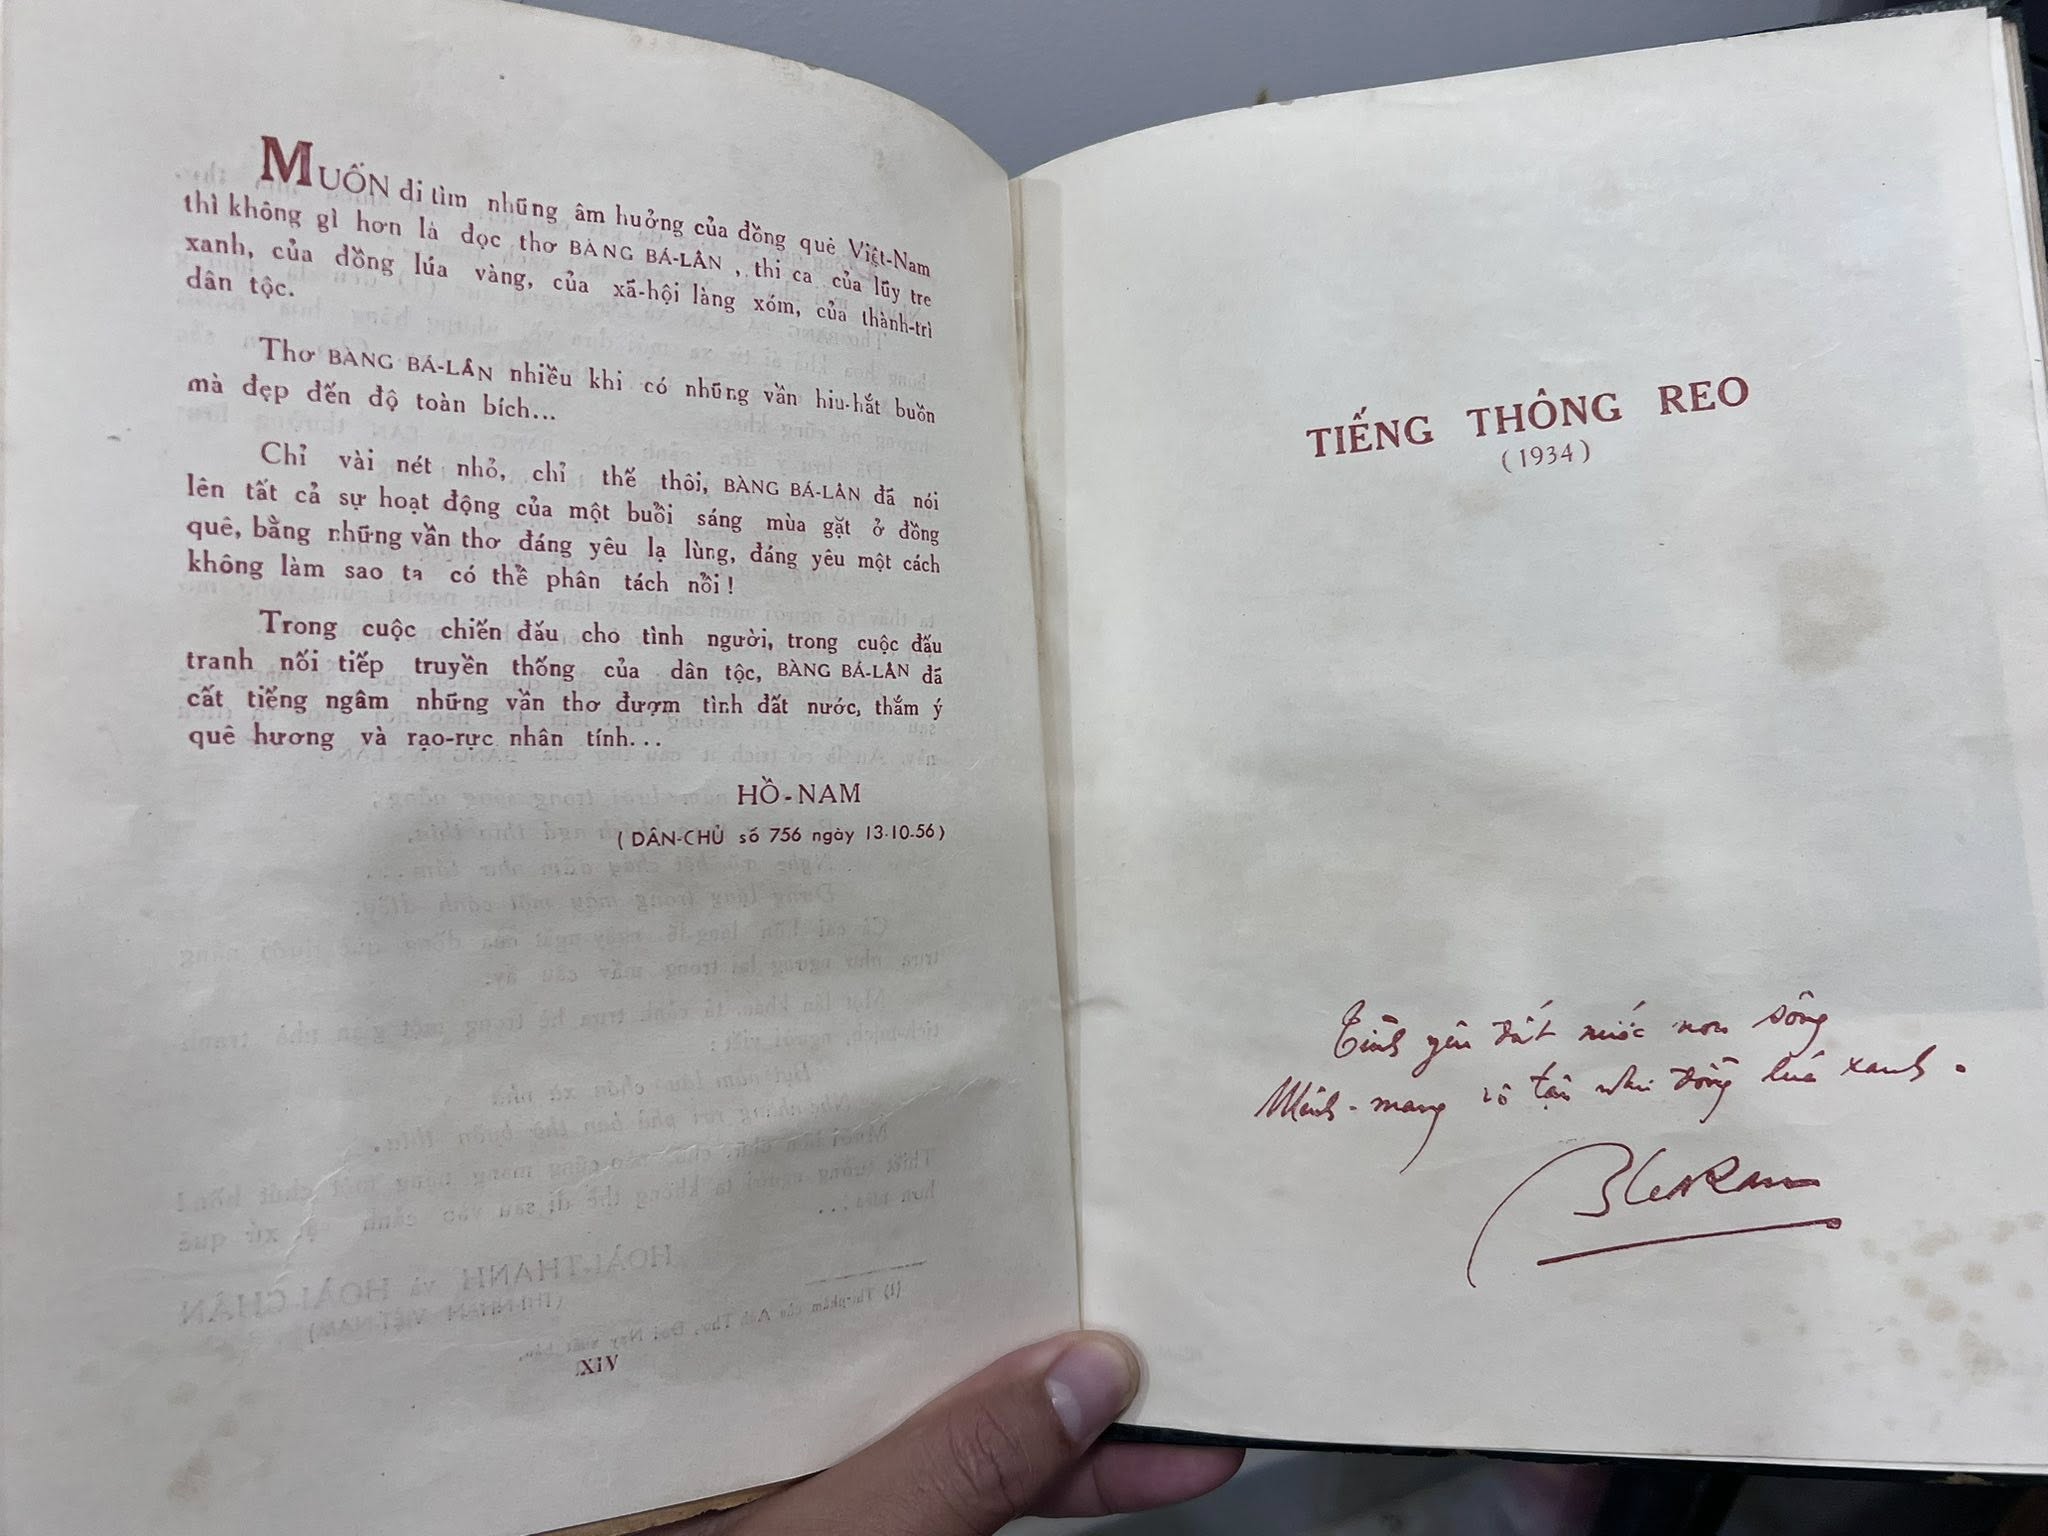 MUỐN đi tìm những âm hưởng của đồng quê Việt-Nam
thì không gì hơn là đọc thơ BÀNG BÁ-LÂN, thi ca của lũy tre
xanh, của đồng lúa vàng, của xã-hội làng xóm, của thành-trì
dân tộc.
Thơ BÀNG BÁ-LÂN nhiều khi có những vần hiu-hắt buồn
mà đẹp đến độ toàn bích...
Chỉ vài nét nhỏ, chỉ thế thôi, BÀNG BÁ-LÂN đã nói
lên tất cả sự hoạt động của một buổi sáng mùa gặt ở đồng
quê, bằng những vần thơ đáng yêu lạ lùng, đáng yêu một cách
không làm sao ta có thể phân tách nổi !
Trong cuộc chiến đấu cho tình người, trong cuộc đấu
tranh nối tiếp truyền thống của dân tộc, BÀNG BÁ-LÂN đã
cất tiếng ngâm những vần thơ đượm tình đất nước, thắm ý
quê hương và rạo-rực nhân tính...
HỒ-NAM
(DÂN-CHỦ số 756 ngày 13-10-56)
XIV
TIẾNG THÔNG REO
(1934)
Tình yêu đất nước non sông
Mênh-mang vô tận như đồng lúa xanh.